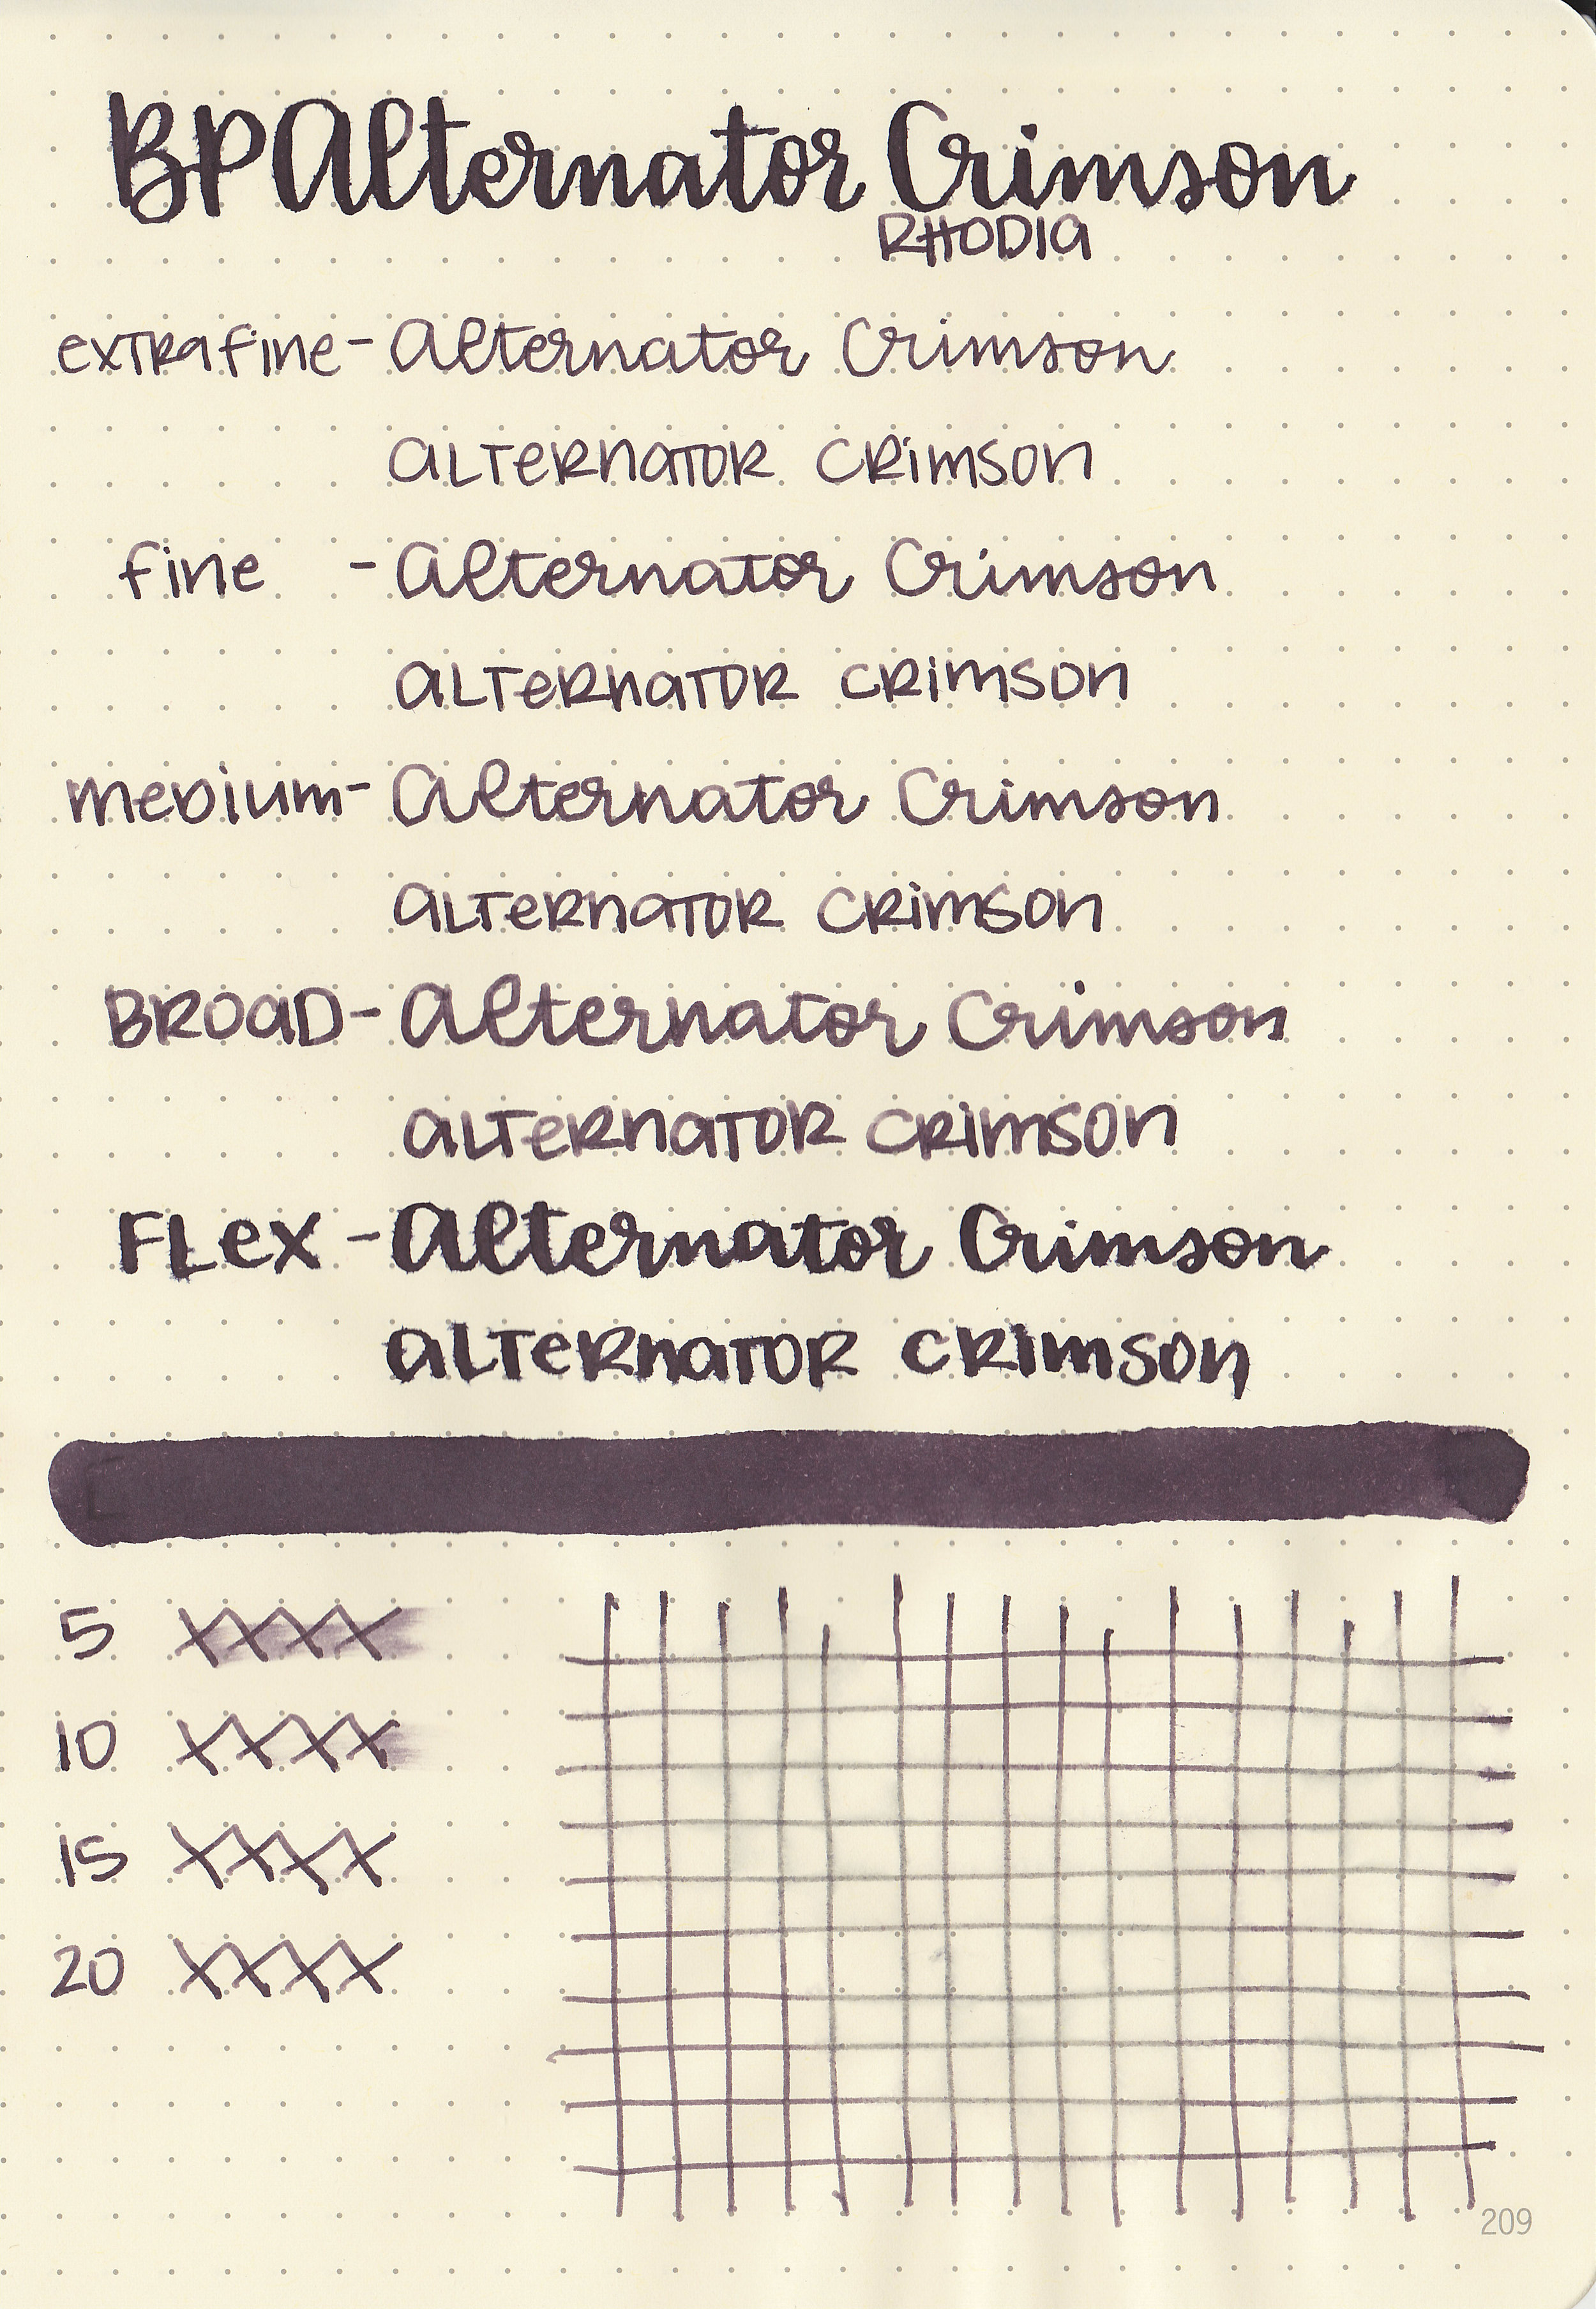 BP Alternator Crimson
RHODIA
extra fine - Alternator Crimson
alternator crimson
fine - Alternator Crimson
alternator crimson
medium - Alternator Crimson
alternator crimson
BROAD - Alternator Crimson
alternator crimson
FLex - Alternator Crimson
alternator crimson
5 XXXX
10 XXXX
15 XXXX
20 XXXX
209